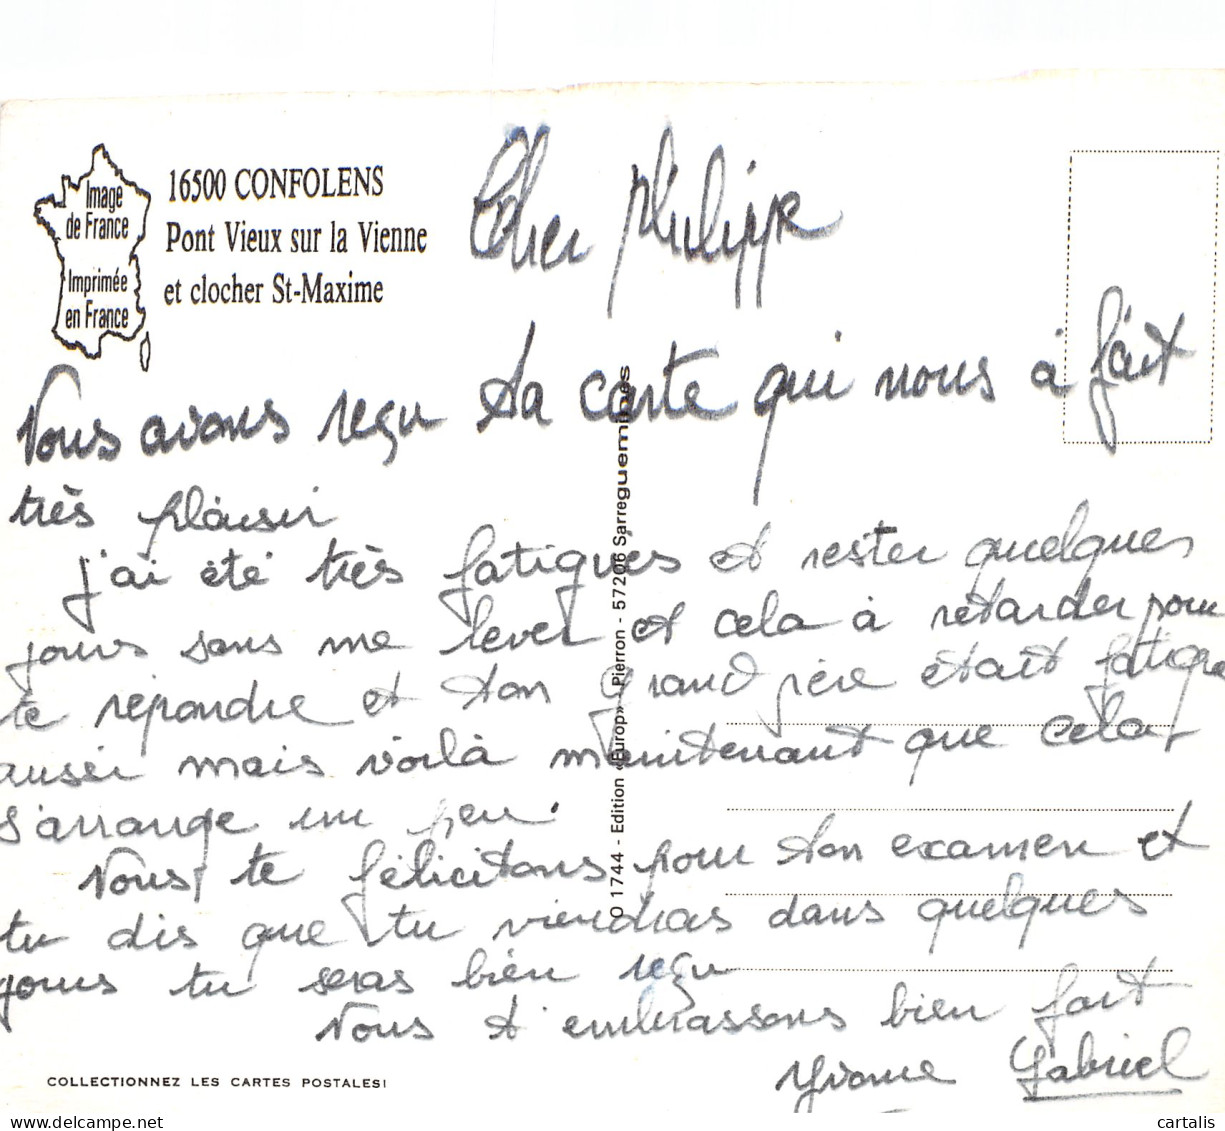 Image
de France
Imprimée
en France
16500 CONFOLENS
Pont Vieux sur la Vienne
et clocher St-Maxime
Cher Philippe
Nous avons reçu ta carte qui nous à fait
très plaisir
j'ai été très fatigués et rester quelques
jours sans me lever et cela à retarder pour
te répondre et ton grand père était fatigué
aussi mais voilà maintenant que cela
s'arrange un peu.
Nous te félicitons pour ton examen et
tu dis que tu viendras dans quelques
jours tu seras bien reçu
Nous t'embrassons bien fort
Yvonne Gabriel
O 1744 - Edition «Europ» Pierron - 57206 Sarreguemines
COLLECTIONNEZ LES CARTES POSTALES!
cartalis